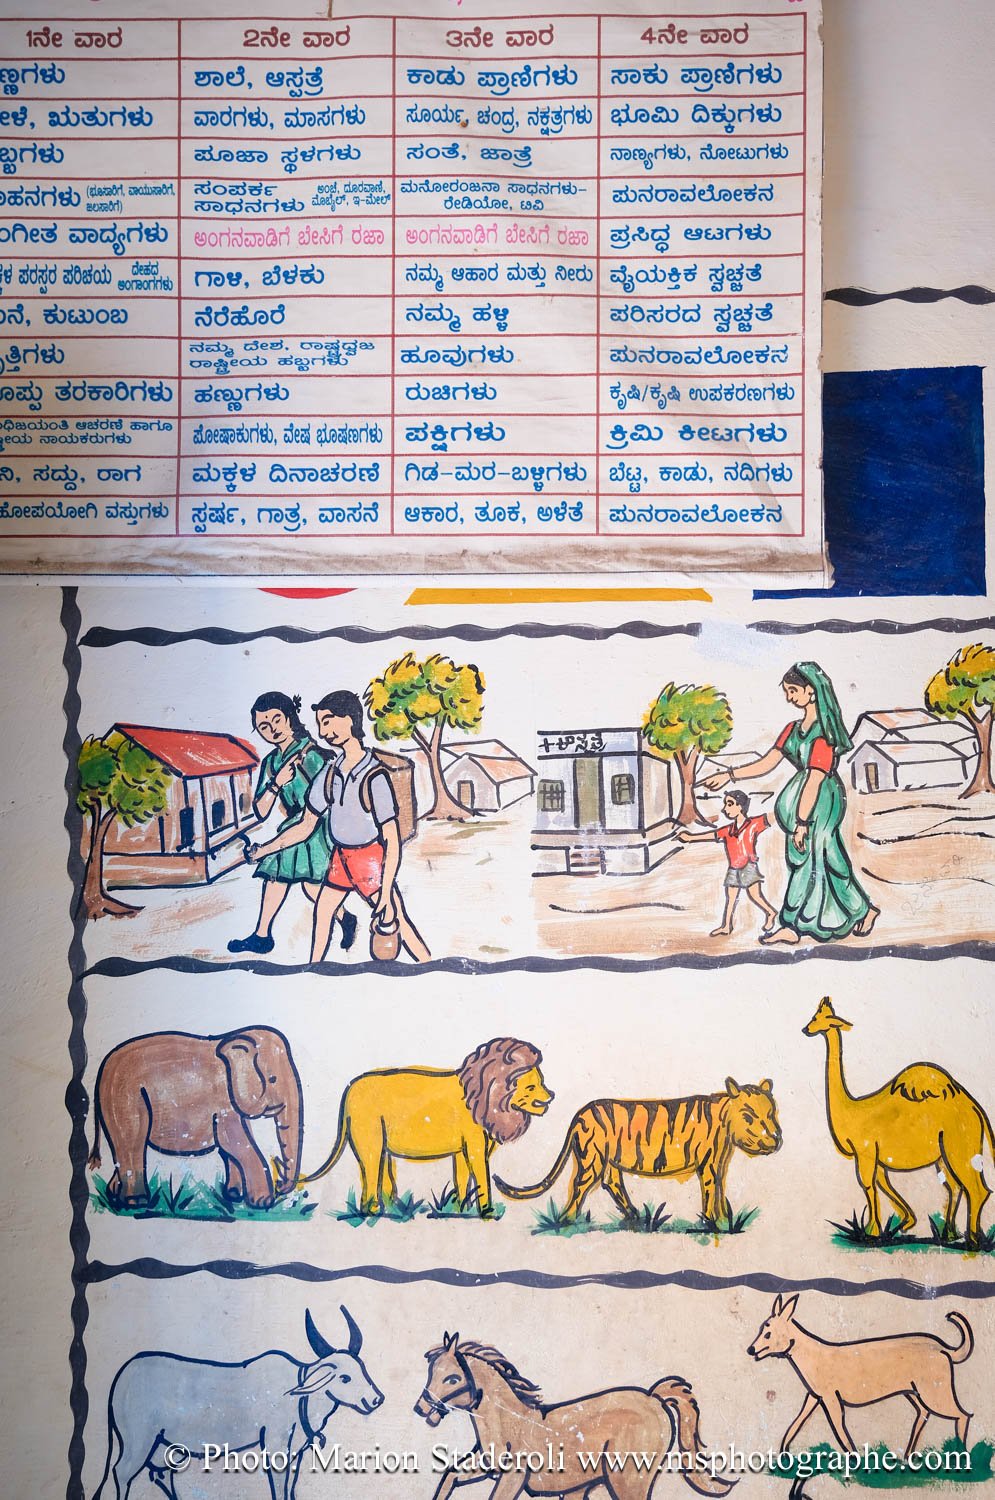 1ನೇ ವಾರ 2ನೇ ವಾರ 3ನೇ ವಾರ 4ನೇ ವಾರ
ಶಾಲೆ, ಆಸ್ಪತ್ರೆ ಕಾಡು ಪ್ರಾಣಿಗಳು ಸಾಕು ಪ್ರಾಣಿಗಳು
ಋತುಗಳು ವಾರಗಳು, ಮಾಸಗಳು ಸೂರ್ಯ, ಚಂದ್ರ, ನಕ್ಷತ್ರಗಳು ಭೂಮಿ ದಿಕ್ಕುಗಳು
ಪೂಜಾ ಸ್ಥಳಗಳು ಸಂತೆ, ಜಾತ್ರೆ ನಾಣ್ಯಗಳು, ನೋಟುಗಳು
(ಭೂಸಾರಿಗೆ, ವಾಯುಸಾರಿಗೆ, ಜಲಸಾರಿಗೆ) ಸಂಪರ್ಕ ಸಾಧನಗಳು ಅಂಚೆ, ದೂರವಾಣಿ, ಮೊಬೈಲ್, ಇ-ಮೇಲ್ ಮನೋರಂಜನಾ ಸಾಧನಗಳು- ರೇಡಿಯೋ, ಟಿವಿ ಪುನರಾವಲೋಕನ
ವಾದ್ಯಗಳು ಅಂಗನವಾಡಿಗೆ ಬೇಸಿಗೆ ರಜಾ ಅಂಗನವಾಡಿಗೆ ಬೇಸಿಗೆ ರಜಾ ಪ್ರಸಿದ್ಧ ಆಟಗಳು
ಪರಸ್ಪರ ಪರಿಚಯ ದೇಹದ ಅಂಗಾಂಗಗಳು ಗಾಳಿ, ಬೆಳಕು ನಮ್ಮ ಆಹಾರ ಮತ್ತು ನೀರು ವೈಯಕ್ತಿಕ ಸ್ವಚ್ಚತೆ
ಕುಟುಂಬ ನೆರೆಹೊರೆ ನಮ್ಮ ಹಳ್ಳಿ ಪರಿಸರದ ಸ್ವಚ್ಚತೆ
ನಮ್ಮ ದೇಶ, ರಾಷ್ಟ್ರಧ್ವಜ ರಾಷ್ಟ್ರೀಯ ಹಬ್ಬಗಳು ಹೂವುಗಳು ಪುನರಾವಲೋಕನ
ತರಕಾರಿಗಳು ಹಣ್ಣುಗಳು ರುಚಿಗಳು ಕೃಷಿ/ಕೃಷಿ ಉಪಕರಣಗಳು
ಆಚರಣೆ ಹಾಗೂ ನಾಯಕರುಗಳು ಪೋಷಾಕುಗಳು, ವೇಷ ಭೂಷಣಗಳು ಪಕ್ಷಿಗಳು ಕ್ರಿಮಿ ಕೀಟಗಳು
ಸದ್ದು, ರಾಗ ಮಕ್ಕಳ ದಿನಾಚರಣೆ ಗಿಡ-ಮರ-ಬಳ್ಳಿಗಳು ಬೆಟ್ಟ, ಕಾಡು, ನದಿಗಳು
ವಸ್ತುಗಳು ಸ್ಪರ್ಷ, ಗಾತ್ರ, ವಾಸನೆ ಆಕಾರ, ತೂಕ, ಅಳತೆ ಪುನರಾವಲೋಕನ
© Photo: Marion Staderoli www.msphotographe.com